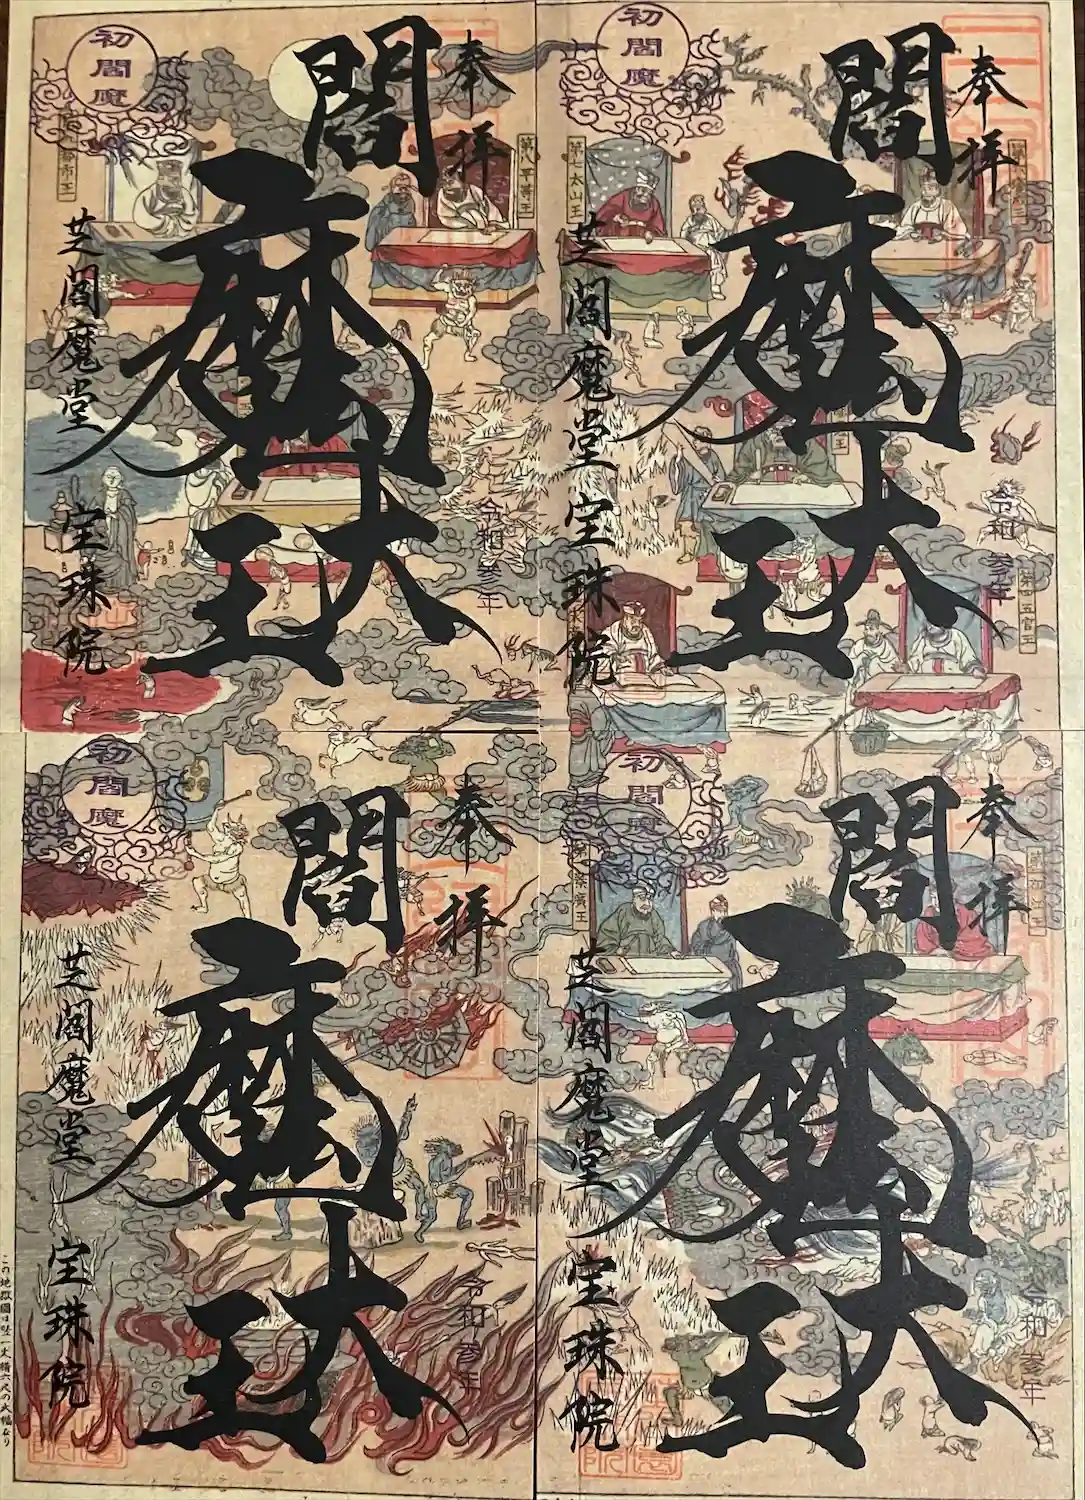 奉拝
閻魔大王
初閻魔
芝閻魔堂 宝珠院
令和参年
第八平等王
奉拝
閻魔大王
初閻魔
芝閻魔堂 宝珠院
令和参年
第七太山王
第四五官王
奉拝
閻魔大王
初閻魔
芝閻魔堂 宝珠院
令和参年
この地獄圖は竪一丈横六尺の大幅なり
奉拝
閻魔大王
初閻
芝閻魔堂 宝珠院
令和参年
第一秦廣王
第二初江王